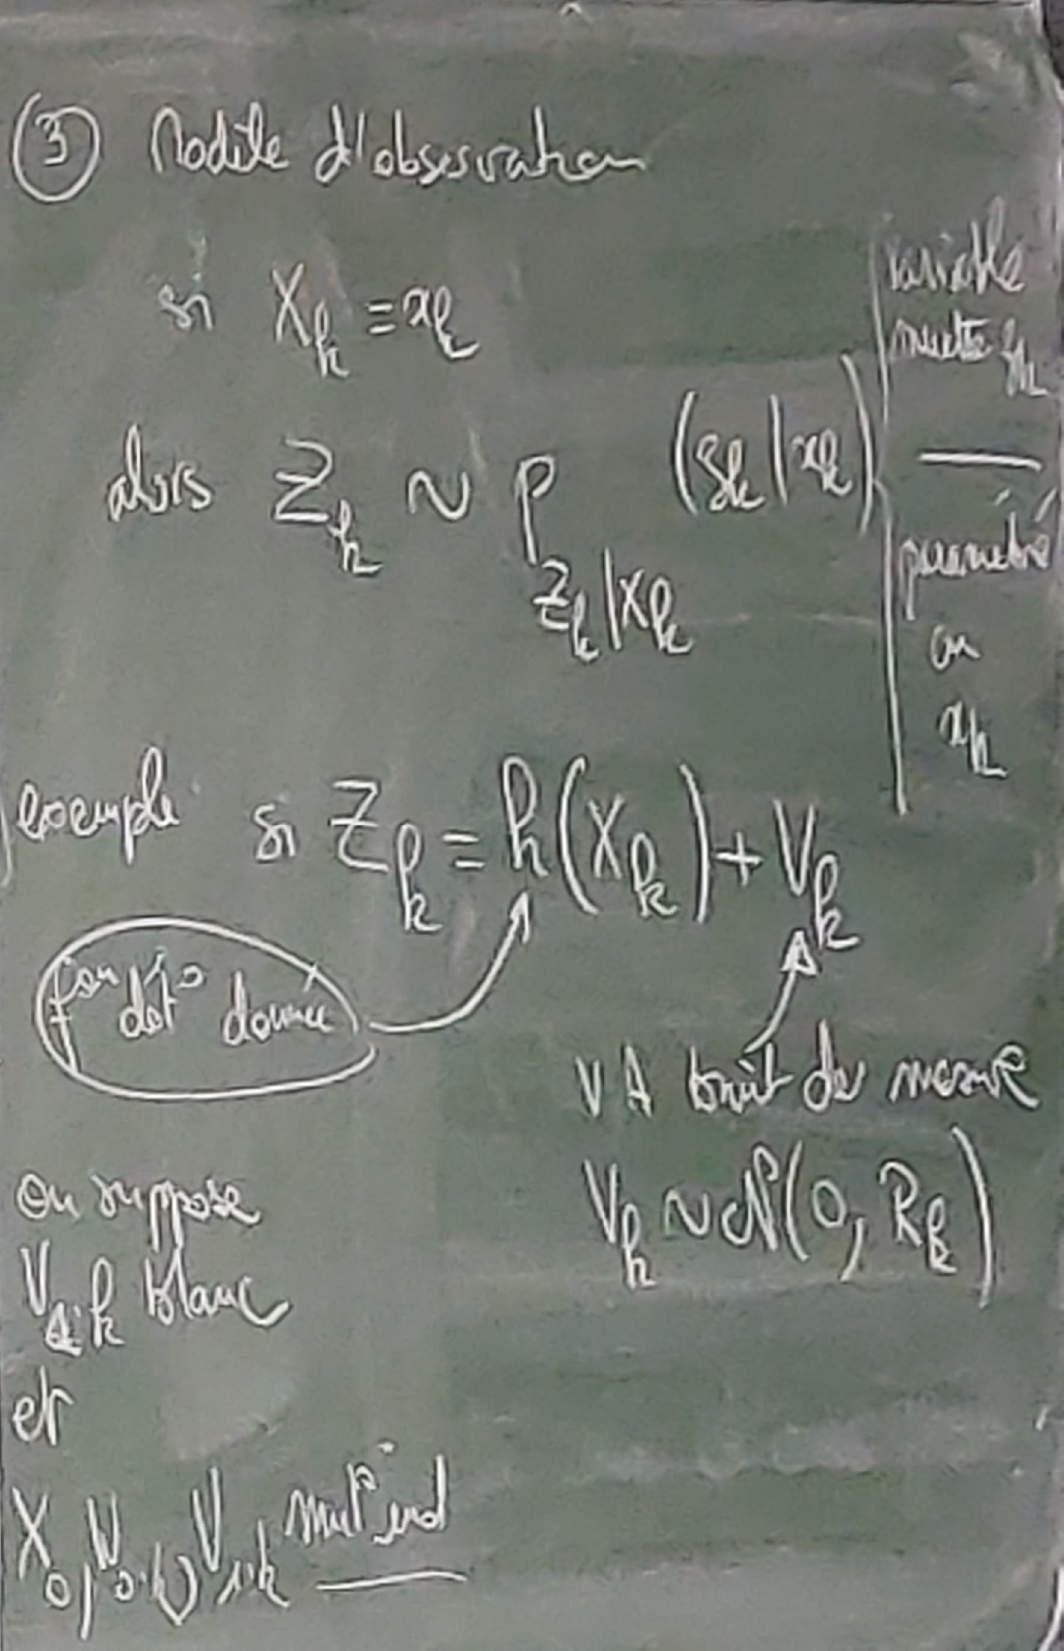 ③ Modèle d'observation
si X_k = x_k
alors Z_k ~ p_{Z_k|X_k} (z_k | x_k)
variable
muette z_k
paramétré
en
x_k
exemple si Z_k = h(X_k) + V_k
f^on dét° donnée
VA bruit de mesure
V_k ~ N(0, R_k)
on suppose
blanc
et
mut^t ind